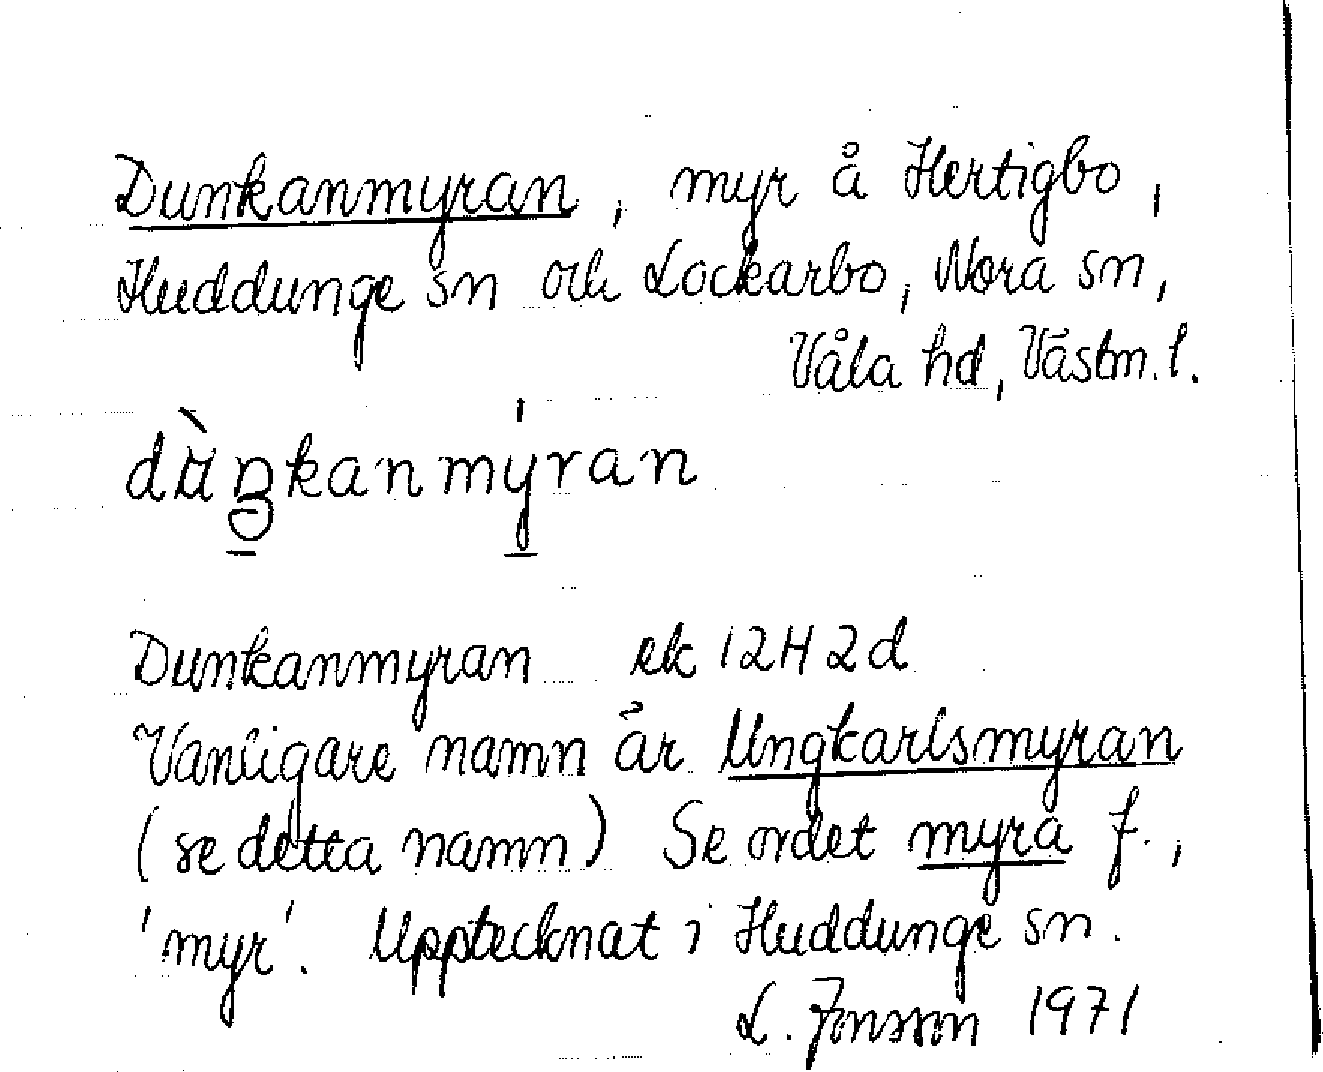 Dunkanmyran, myr å Hertigbo,
Huddunge sn och Lockarbo, Nora sn,
Våla hd, Västm. l.
dùŋkanmýran
Dunkanmyran ek 12H2d
Vanligare namn är Ungkarlsmyran
(se detta namn) Se ordet myra f.,
'myr'. Upptecknat i Huddunge sn.
L. Jonsson 1971